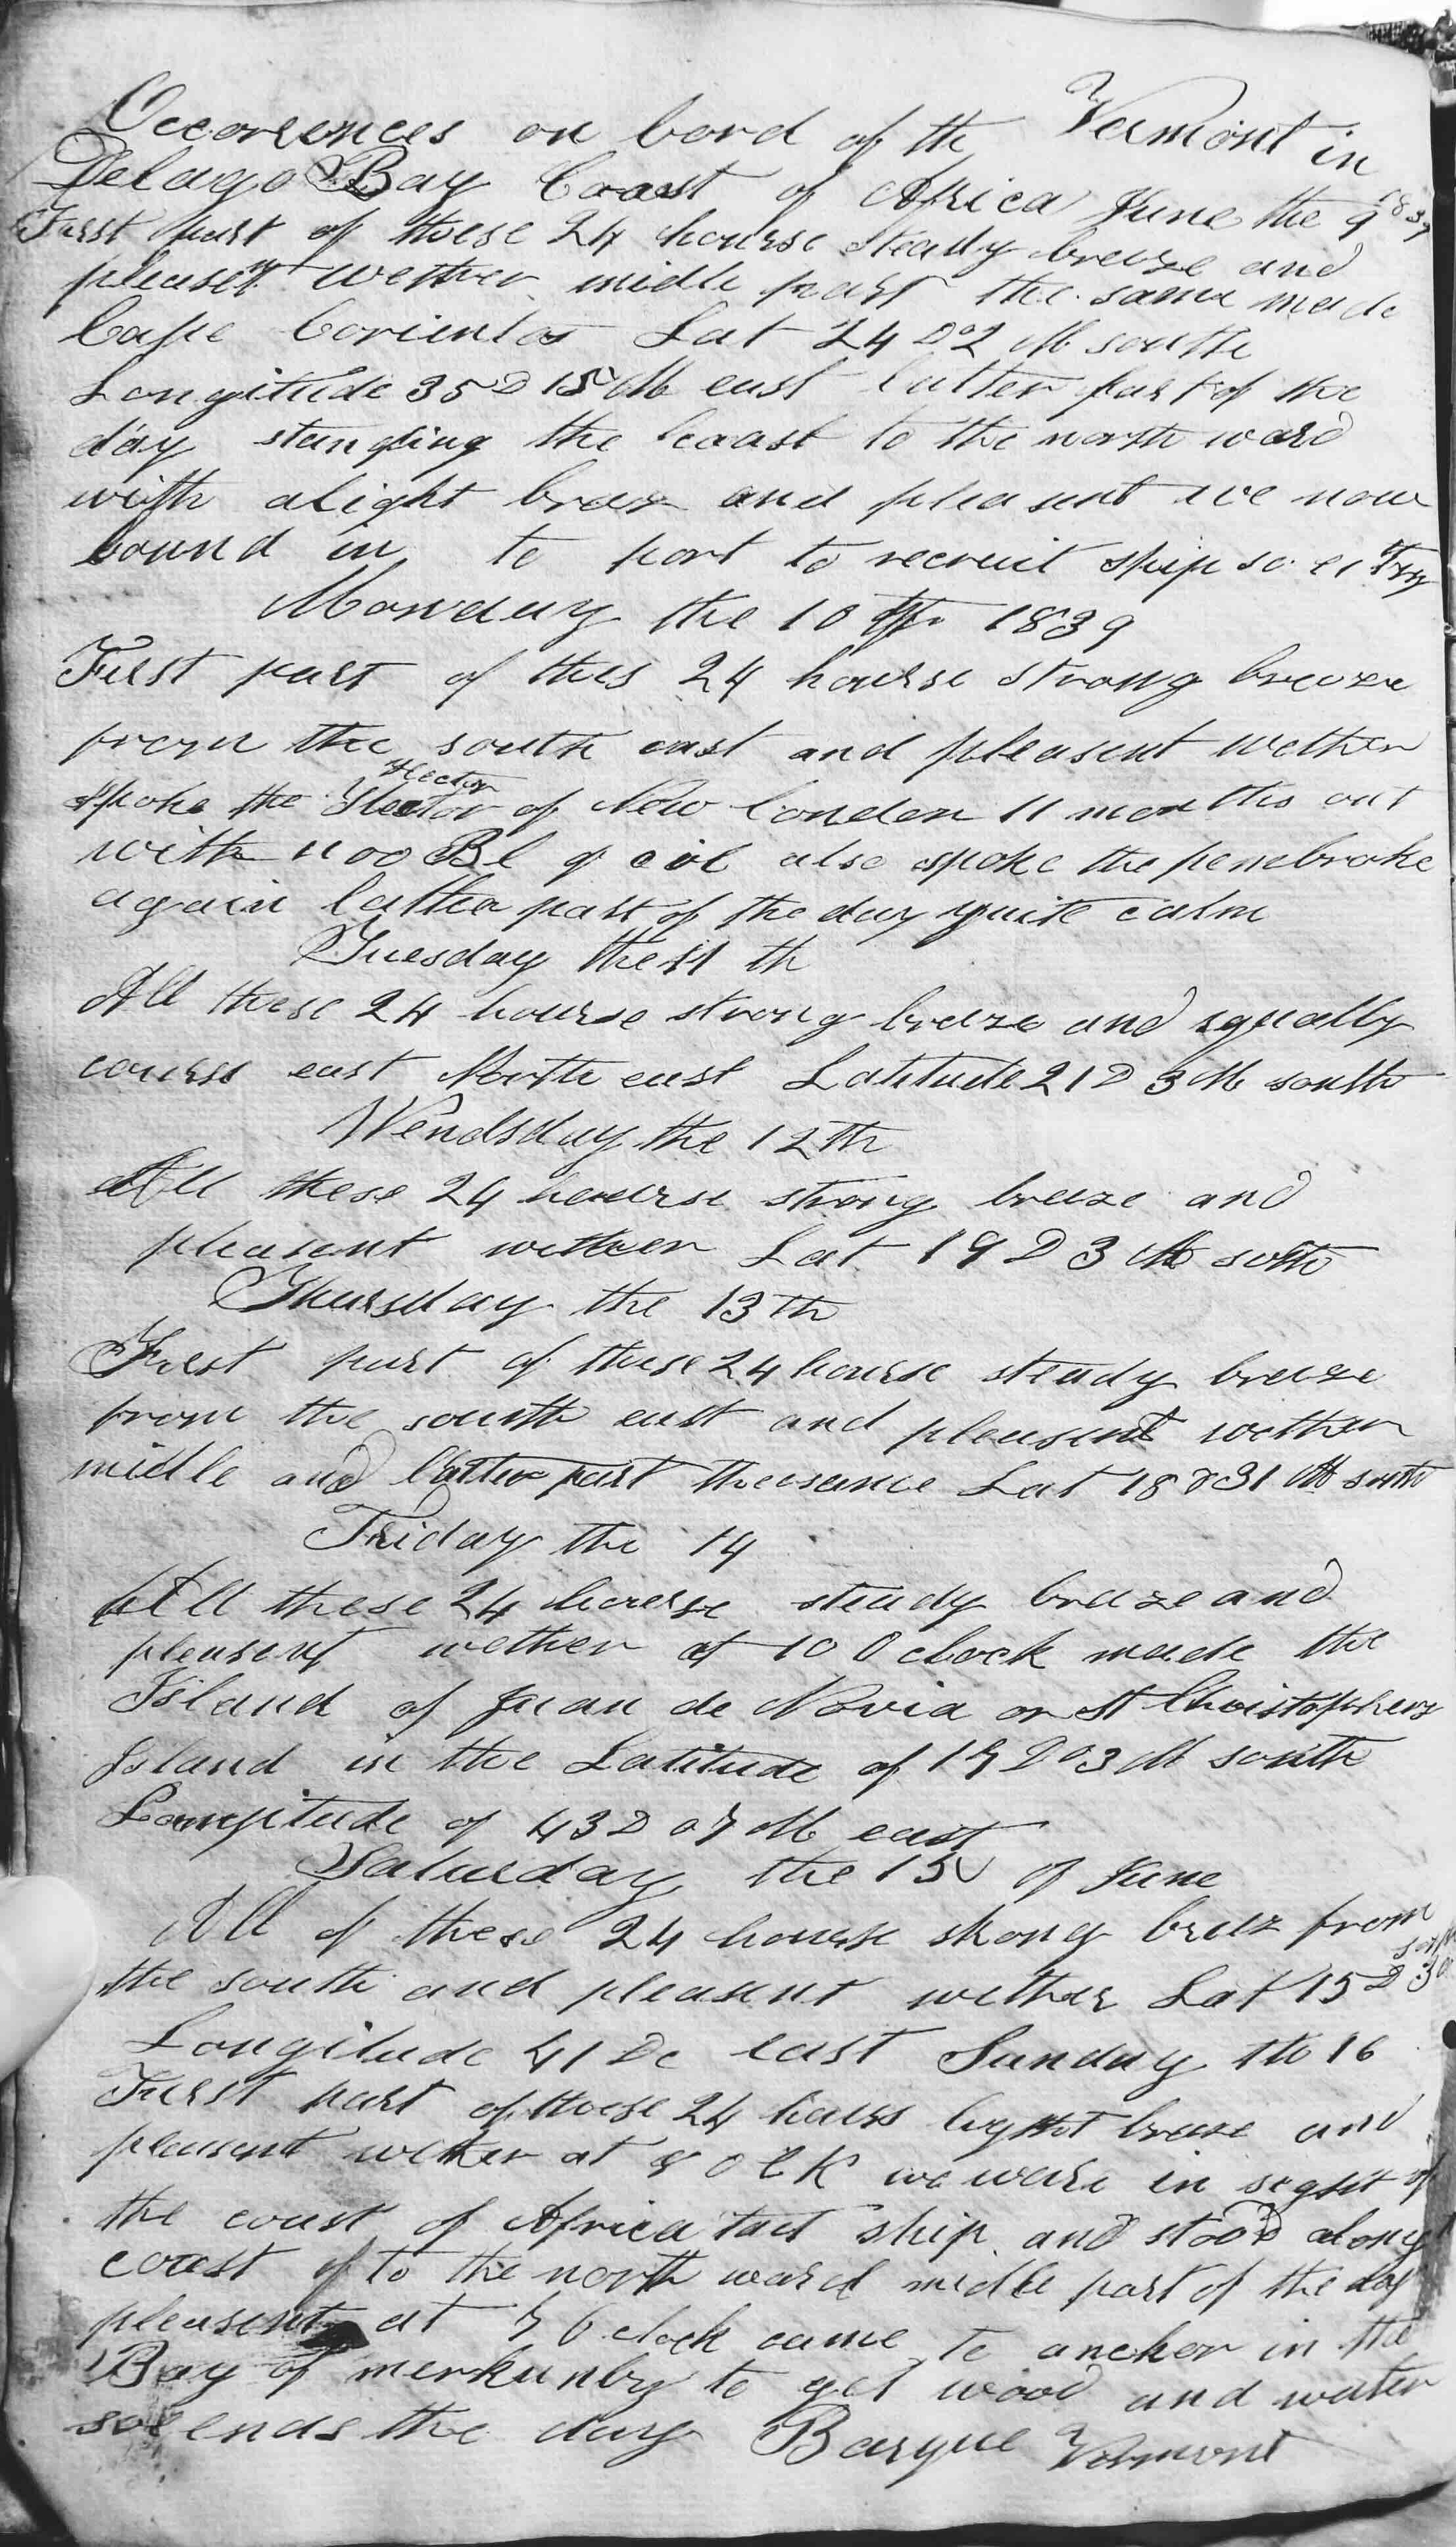 Occorences on bord of the Vermont in
Delago Bay Coast of Africa June the 9 1839
First part of these 24 hourse steady breeze and
plesent wether midle part the same made
Cape Corientas Lat 24 D 02 M south
Longitude 35 D 15 M east latter part of the
day standing the coast to the north ward
with alight breaz and pleasent we now
bound in to port to recruit ship so
Monday the 10 th 1839
First part of thes 24 hourse strong breeze
from the south east and pleasent wether
Hector
spoke the Hector of New London 11 months out
with 1100 Bl of oil also spoke the penebroke
again latter part of the day quite calm
Tuesday the 11 th
All these 24 hourse strong breeze and squally
course east North east Latitude 21 D 3 M south
Wendsday the 12 Th
All these 24 hourse strong breeze and
pleasent wether Lat 19 D 3 M soth
Thursday the 13 Th
First part of these 24 hourse steady breeze
from the south east and pleasent wether
midle and latter part the same Lat 18 D 31 M south
Friday the 14
All these 24 hourse steady breeze and
pleasent wether at 10 O clock made the
Island of Juan de Novia or St Christophers
Island in the Latitude of 17 D 03 M south
Longitude of 43 D 07 M east
Saturday the 15 of June
All of these 24 hourse strong breez from
the south and pleasent wether Lat 15 D 30 south
Longitude 41 De east Sunday the 16
First part of these 24 hours lyght breese and
pleasent wether at 8 O C K we ware in sight of
the coast of Africa tact ship and stood along
coast of to the north ward midle part of the day
pleasent at 7 O clock came to anchor in the
Bay of merkunby to get wood and water
so ends the day Barque Vermont